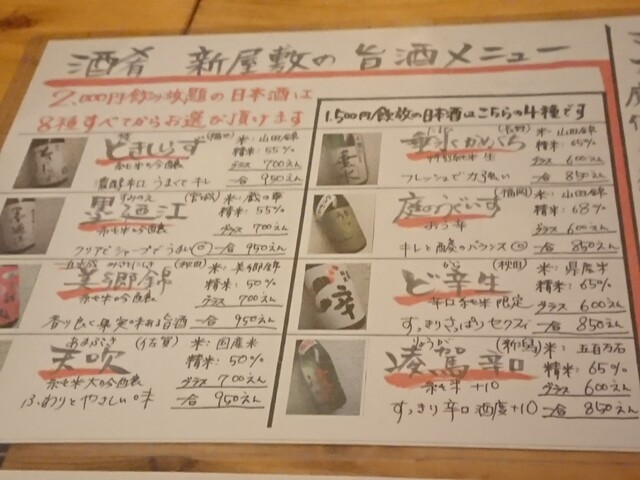 酒肴 新屋敷の旨酒メニュー
2,000円飲み放題の日本酒は
8種すべてからお選び頂けます
ときしらず (福岡) 米:山田錦
純米吟醸 精米:55%
グラス 700えん
濃醇辛口 うまくてキレ 一合 950えん
すみのえ
墨廼江 (宮城) 米:蔵の華
純米吟醸 精米:55%
グラス 700えん
クリアでシャープでうまい◎ 一合 950えん
みさとにしき
美郷錦 (秋田) 米:美郷錦
純米吟醸 精米:50%
グラス 700えん
香り良く果実味ある旨酒 一合 950えん
あまぶき
天吹 (佐賀) 米:国産米
純米大吟醸 精米:50%
グラス 700えん
ふわりとやさしい味 一合 950えん
1,500円飲放の日本酒はこちらの4種です
(長野) 米:山田錦
生 精米:65%
グラス 600えん
フレッシュで力強い 一合 850えん
庭のうぐいす (福岡) 米:山田錦
精米:68%
グラス 600えん
キレと酸のバランス◎ 一合 850えん
ど辛 生 (秋田) 米:県産米
辛口純米 限定 精米:65%
グラス 600えん
すっきりさっぱりセクスィ 一合 850えん
りょうが
凌駕 辛口 (新潟) 米:五百万石
純米 +10 精米:65%
グラス 600えん
すっきり辛口 酒度+10 一合 850えん